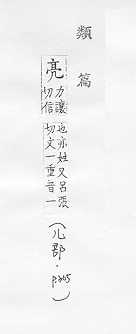 類篇
亮 力讓
切信
也亦姓又呂張
切文一重音一
(儿部·